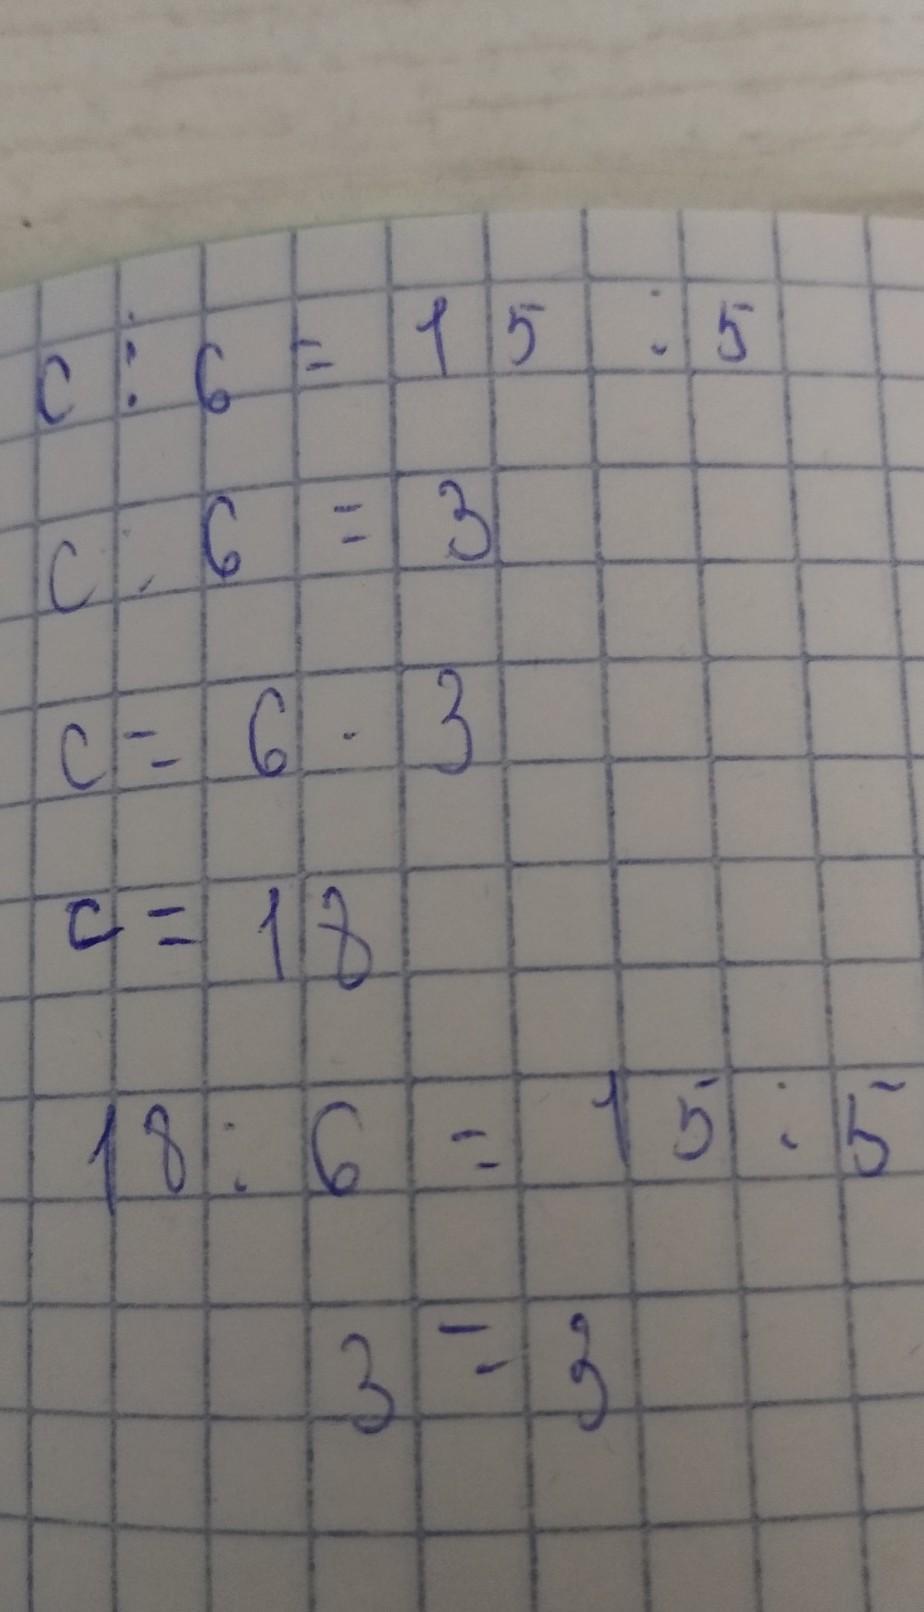 c : 6 = 15 : 5
c : 6 = 3
c = 6 · 3
c = 18
18 : 6 = 15 : 5
3 = 3